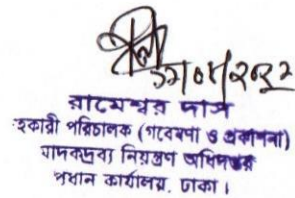 ১২/০৮/২০২২
রামেশ্বর দাস
হকারী পরিচালক (গবেষণা ও প্রকাশনা)
মাদকদ্রব্য নিয়ন্ত্রণ অধিদপ্তর
প্রধান কার্যালয়, ঢাকা।